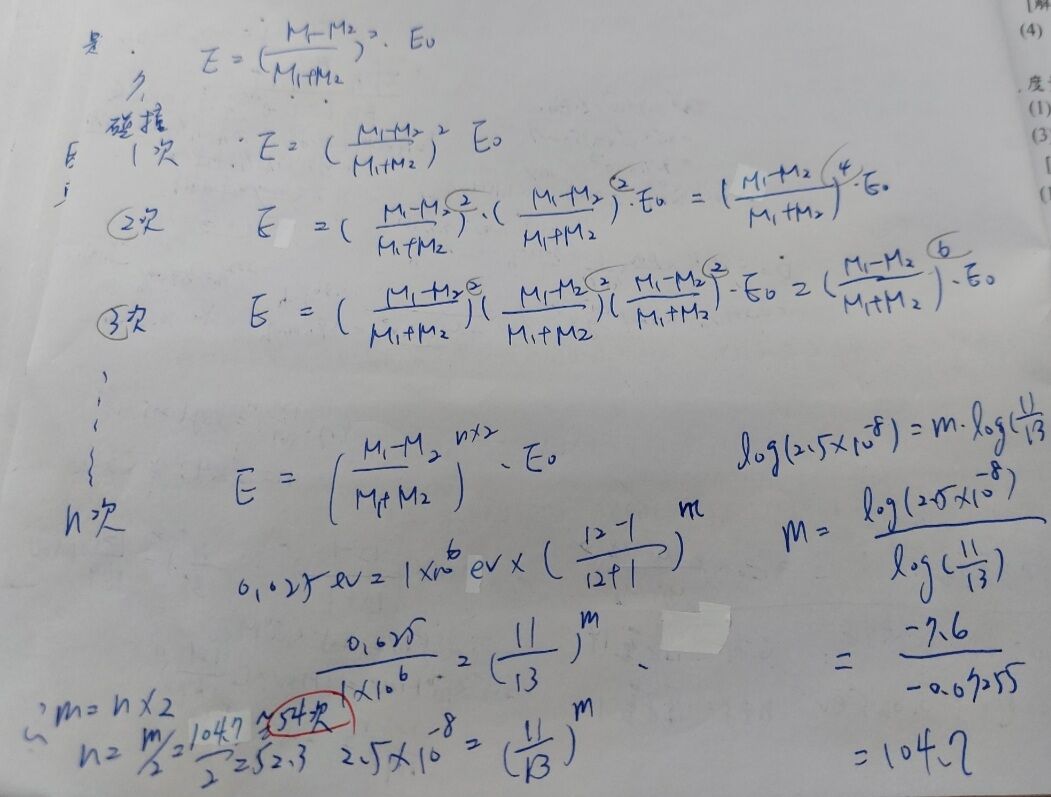 是 . E = (M₁-M₂/M₁+M₂)². E₀
碰撞
1次 E = (M₁-M₂/M₁+M₂)² E₀
2次 E = (M₁-M₂/M₁+M₂)²·(M₁-M₂/M₁+M₂)²·E₀ = (M₁-M₂/M₁+M₂)⁴·E₀
3次 E = (M₁-M₂/M₁+M₂)²(M₁-M₂/M₁+M₂)²(M₁-M₂/M₁+M₂)²·E₀ = (M₁-M₂/M₁+M₂)⁶·E₀
n次 E = (M₁-M₂/M₁+M₂)ⁿˣ²·E₀
0.025 ev = 1×10⁶ ev × (12-1/12+1)ᵐ
0.025/1×10⁶ = (11/13)ᵐ
2.5×10⁻⁸ = (11/13)ᵐ
∵ m = n×2
n = m/2 = 104.7/2 = 52.3 ≈ 54次
log(2.5×10⁻⁸) = m·log(11/13
m = log(2.5×10⁻⁸)/log(11/13)
= -7.6/-0.07255
= 104.7
[解
(4)
度
(1)
(3